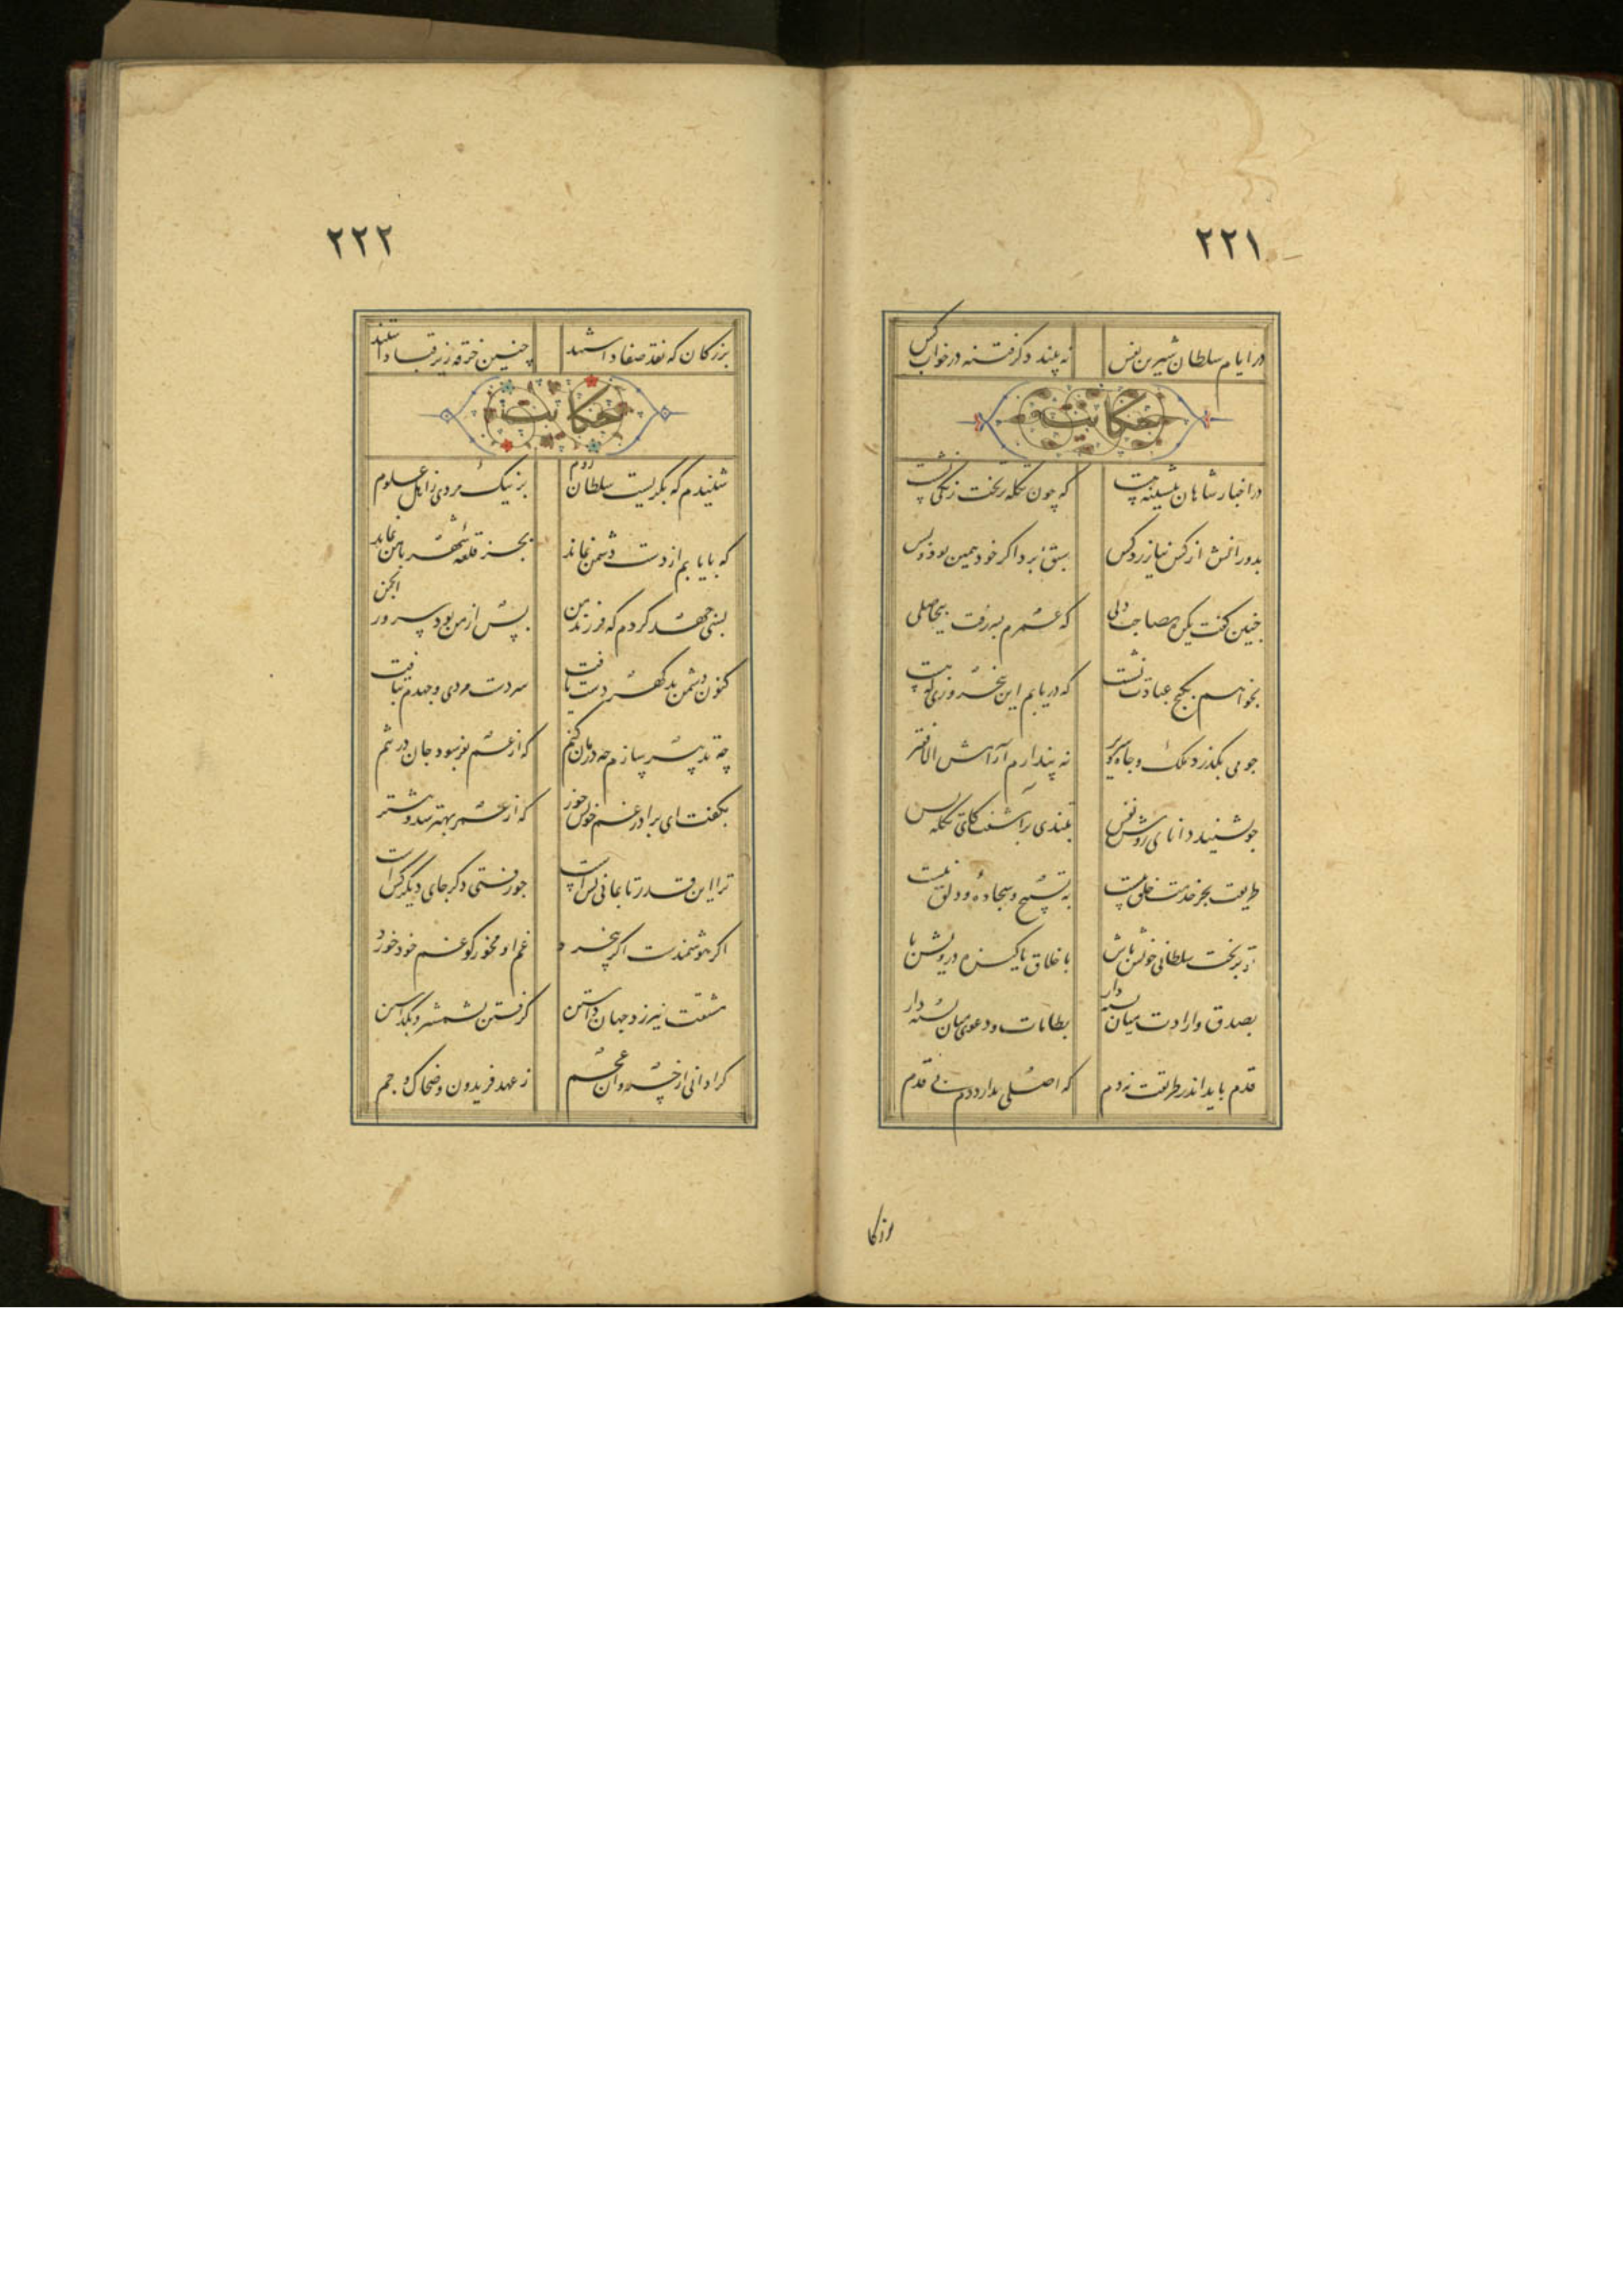 ۲۲۱
در ایام سلطان شیرین نفس نه بیند دگر فتنه در خواب کس
حکایت
در اخبار شاهان پیشینه هست که چون تکله بر تخت زنگی نشست
بدورانش از کس نیازرد کس سبق برد اگر خود همین بود و بس
چنین گفت یکره بصاحب دلی که عمرم بسر رفت بیحاصلی
بخواهم بکنج عبادت نشست که دریابم این پنجروزی که هست
چو می بگذرد ملک و جاه و سریر نه پندارم الا فقیر
چو بشنید دانای روشن نفس بتندی برآشفت کای تکله بس
طریقت بجز خدمت خلق نیست به تسبیح و سجاده و دلق نیست
تو بر تخت سلطانی خویش باش باخلاق پاکیزه درویش باش
بصدق و ارادت میان بسته دار بطامات و دعوی میان بسته دار
قدم باید اندر طریقت نه دم که اصلی ندارد دم بی قدم
۲۲۲
بزرگان که نقد صفا داشتند چنین خرقه زیر قبا داشتند
حکایت
شنیدم که بگریست سلطان روم بر نیک مردی ز اهل علوم
که پایابم از دست دشمن نماند بجز قلعه شهر با من نماند
بسی جهد کردم که فرزند من پس از من بود سرور انجمن
کنون دشمن بد گهر دست یافت سر دست مردی و جهدم بتافت
چه تدبیر سازم چه درمان کنم که از غم بفرسود جان در تنم
بگفت ای برادر غم خویش خور که از عمر بهتر شد و بیشتر
ترا این قدر تا بمانی بس است چو رفتی دگر جای دیگر کس است
اگر هوشمندست اگر بیخرد غم او مخور کو غم خود خورد
مشقت نیرزد جهان داشتن گرفتن بشمشیر و بگذاشتن
کرا دانی از خسروان عجم ز عهد فریدون و ضحاک و جم